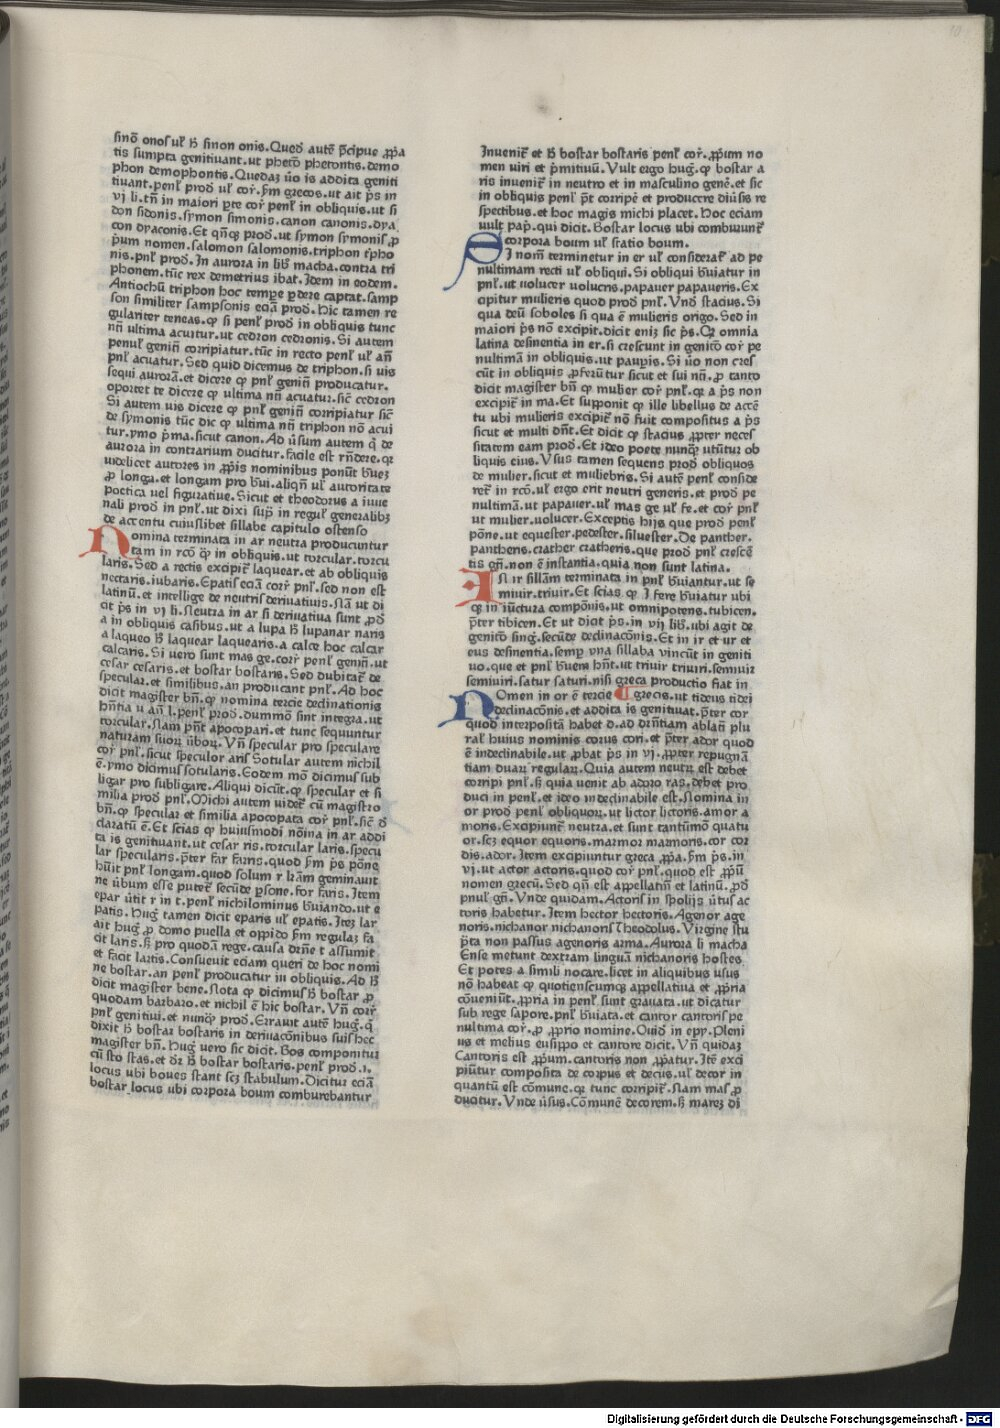 sinō onos uł h̄ sinon onis. Queđ autē p̄cipue ꝓp̄a
tis sumpta genitiuant. ut phetō phetontis. demo
phon demophontis. Quedaʒ ūo is addita geniti
tiuant. penł prod uł cor̄. fm̄ grecos. ut ait p̄s in
vj li. tn̄ in maiori pte cor̄ penł in obliquis. ut si
don sidonis. symon simonis. canon canonis. dya
con dyaconis. Et qn̄qꝫ prod. ut symon symonis. p
p̄um nomen. salomon salomonis. triphon tpho
nis. pnł prod. In aurora in lib̄ macha. contra tri
phonem. tūc rex demetrius ibat. Idem in eodem.
Antiochū triphon hoc tempe pdere captat. samp
son similiter sampsonis eciā prod. hic tamen re
gulariter teneas. ꝙ si penł prod in obliquis tunc
nn̄ ultima acuitur. ut cedron cedronis. Si autem
penuł genin̄ corripiatur. tūc in recto penł uł an̄
pnł acuatur. Sed quid dicemus de triphon. si uis
sequi aurorā. et dicere ꝙ pnł genin̄ producatur.
oportet te dicere ꝙ ultima nn̄ acuatur. sic̄ cedron
Si autem uis dicere ꝙ pnł genin̄ corripiatur sic̄
de symonis tūc dic ꝙ ultima nn̄ triphon nō acui
tur. ymo p̄ma. sicut canon. Ad ūsum autem q̄ de
aurora in contrarium ducitur. facile est rn̄dere. qr
uidelicet autores in ꝓp̄is nominibus ponūt b̄ueʒ
ꝓ longa. et longam pro b̄ui. aliqn̄ uł autoritate
poetica uel figuratiue. Sicut et theodorus a iuue
nali prod in pnł. ut dixi sup̄ in reguł generalibꝫ
de accentu cuiuslibet sillabe capitulo ostenso
Nomina terminata in ar neutra producuntur
tam in rcō ꝙ in obliquis. ut torcular. torcu
laris. Sed a rectis excipit̄ laquear. et ab obliquis
nectaris. iubaris. Epatis eciā cor̄ pnł. sed non est
latinū. et intellige de neutris deriuatiuis. Nā ut di
cit p̄s in vj li. Neutra in ar si deriuatiua sunt ꝓđ
a in obliquis casibus. ut a lupa h̄ lupanar naris
a laqueo h̄ laquear laquearis. a calce hoc calcar
calcaris. Si uero sunt mas ge. cor̄ penł genin̄. ut
cesar cesaris. et bostar bostaris. Sed dubitat̄ de
specular. et similibus. an producant pnł. Ad hoc
dicit magister bn̄. ꝙ nomina tercie declinationis
hn̄tia u an̄ l. penł prod. dummō sint integra. ut
torcular. Nam pn̄t apocopari. et tunc sequuntur
naturam suoꝝ ūboꝝ. Vn̄ specular pro speculare
cor̄ pnł. sicut speculor aris Sotular autem nichil
ē. ymo dicimus sotularis. Eodem mō dicimus sub
ligar pro subligare. Aliqui dicūt. ꝙ specular et si
milia prod pnł. Michi autem uidet̄ cū magistro
bn̄. ꝙ specular et similia apocopata cor̄ pnł. sic̄ đ
claratū ē. Et scias ꝙ huiusmodi nōina in ar addi
ta is genitiuant. ut cesar ris. torcular laris. specu
lar specularis. pter far farris. quod fm̄ p̄s pōne
hūit pnł longam. quod solum r lr̄am geminauit
ne ūbum esse putet̄ secūde psone. for faris. Item
epar ūtit r in t. penł nichilominus b̄uiando. ut e
patis. Hug̉ tamen dicit eparis uł epatis. Iteʒ lar
ait hug̉ ꝓ domo puella et oppido fm̄ regulaʒ fa
cit laris. sꝫ pro quodā rege. causa drn̄e t assumit
et facit lartis. Consueuit eciam queri de hoc nomi
ne bostar. an penł producatur in obliquis. Ad h̄
dicit magister bene. Nota ꝙ dicimus h̄ bostar ꝓ
quodam barbaro. et nichil ē hic bostar. Vn̄ cor̄
pnł genitiui. et nunꝙ prod. Errauit autē hug̉. q̄
dixit h̄ bostar bostaris in deriuacōnibus suis hec
magister bn̄. Hug̉ uero sic dicit. Bos componitur
cū sto stas. et dr̄ h̄ bostar bostaris. penł prod. i.
locus ubi boues stant scꝫ stabulum. Dicitur eciā
bostar locus ubi corpora boum comburebantur
Inuenit̄ et h̄ bostar bostaris penł cor̄. ꝓp̄um no
men uiri et p̄mitiuū. Vult ergo hug̉. ꝙ bostar a
ris inuenit̄ in neutro et in masculino genē. et sic
in obliquis penł pn̄t corripē et producere diūsis re
spectibus. et hoc magis michi placet. Hoc eciam
uult pap̄. qui dicit. Bostar locus ubi comburunt̄
corpora boum uł statio boum.
Si nom̄ terminetur in er uł considerat̄ ad pe
nultimam recti uł obliqui. Si obliqui b̄uiatur in
pnł. ut uolucer uolucris. papauer papaueris. Ex
cipitur mulieris quod prod pnł. Vnđ stacius. Si
qua deū soboles si qua ē mulieris origo. Sed in
maiori p̄s nō excipit. dicit eniʒ sic p̄s. Qr omnia
latina desinentia in er. si crescunt in genitō cor̄ pe
nultimā in obliquis. ut paupis. Si ūo non cres
cūt in obliquis ꝓferūtur sicut et sui nn̄. ꝓ tanto
dicit magister bn̄ ꝙ mulier cor̄ pnł. qr a p̄s non
excipit̄ in ma. Et supponit ꝙ ille libellus de accē
tu ubi mulieris excipit̄ nō fuit compositus a p̄s
sicut et multi dn̄t. Et dicit ꝙ stacius ꝓpter neces
sitatem eam prod. Et ideo poete nunꝙ utūtur ob
liquis eius. Vsus tamen sequens prod obliquos
de mulier. sicut et muliebris. Si autē penł conside
ret̄ in rcō. uł ergo erit neutri generis. et prod pe
nultimā. ut papauer. uł mas ge uł fe. et cor̄ pnł
ut mulier. uolucer. Exceptis hijs que prod penł
pōne. ut equester. pedester. siluester. De panther.
pantheris. crather cratheris. que prod pnł crescē
tis gn̄. non ē instantia. quia non sunt latina.
In ir sillām terminata in pnł b̄uiantur. ut se
miuir. triuir. Et scias ꝙ I fere b̄uiatur ubi
qꝫ in iūctura compōnis. ut omnipotens. tubicen.
pter tibicen. Et ut dicit p̄s. in vij lib̄. ubi agit de
genitō sing̉. secūde declinacōnis. Et in ir et ur et
eus desinentia. semp vna sillaba vincūt in geniti
uo. que et pnł b̄uem hn̄t. ut triuir triuiri. semiuir
semiuiri. satur saturi. nisi greca productio fiat in
Nomen in or ē tercie ¶ grecis. ut tideus tidei
declinacōnis. et addita is genitiuat. pter cor
quod interpositā habet d. ad drn̄tiam ablatī plu
rał huius nominis corus cori. et pter ador quod
ē indeclinabile. ut ꝓbat p̄s in vj. ꝓpter repugnā
tiam duaꝝ regulaꝝ. Quia autem neutꝝ est debet
corripi pnł. sꝫ quia uenit ab adoro ras. debet pro
duci in penł. et ideo indeclinabile est. Nomina in
or prod penł obliquoꝝ. ut lictor lictoris. amor a
moris. Excipiunt̄ neutra. et sunt tantūmō quatu
or. scꝫ equor equoris. marmor marmoris. cor cor
dis. ador. Item excipiuntur greca ꝓp̄a. fm̄ p̄s. in
vj. ut actor actoris. quod cor̄ pnł. quod est ꝓp̄ū
nomen grecū. Sed qn̄ est appellatiū et latinū. ꝓđ
pnuł gn̄. Vnde quidam. Actoris in spolijs ūtus ac
toris habetur. Item hector hectoris. Agenor age
noris. nichanor nichanoris Theodolus. Virgine stu
p̄ta non passus agenoris arma. Aurora li macha
Ense metunt dextram linguā nichanoris hostes
Et potes a simili uocare. licet in aliquibus usus
nō habeat ꝙ quotienscumqꝫ appellatiua et ꝓp̄ria
cōueniūt. ꝓp̄ria in penł sunt grauata. ut dicatur
sub rege sapore. pnł b̄uiata. et cantor cantoris pe
nultima cor̄. ꝓ ꝓp̄rio nomine. Ouid in epy. Pleni
us et melius eusippo et cantore dicit. Vn̄ quidaʒ
Cantoris est ꝓp̄um. cantoris non ꝓp̄atur. Itē exci
piūtur composita de corpus et decus. uł decor in
quantū est cōmune. qr tunc corripit̄. Nam mas ꝓ
ducitur. Vnde ūsus. Cōmunē decorem. sꝫ mareʒ di
Digitalisierung gefördert durch die Deutsche Forschungsgemeinschaft - DFG